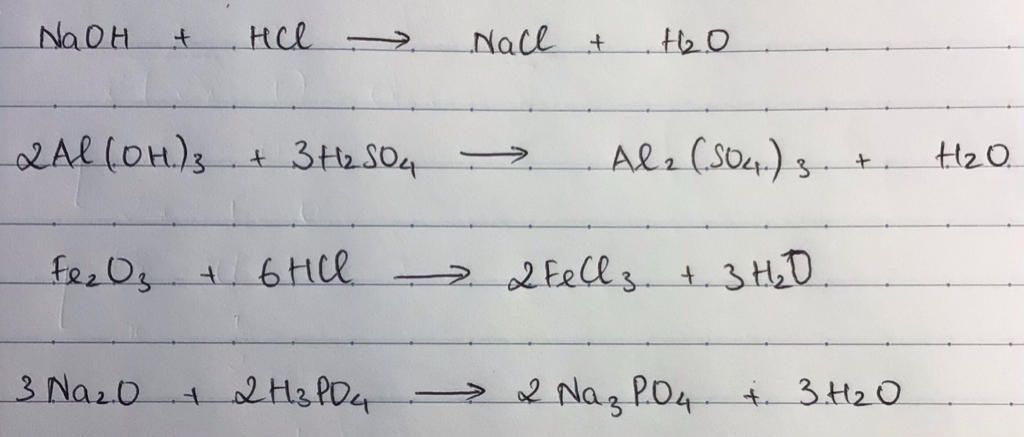 NaOH + HCl → NaCl + H2O
2Al(OH)3 + 3H2SO4 → Al2(SO4)3 + H2O
Fe2O3 + 6HCl → 2FeCl3 + 3H2O
3Na2O + 2H3PO4 → 2Na3PO4 + 3H2O